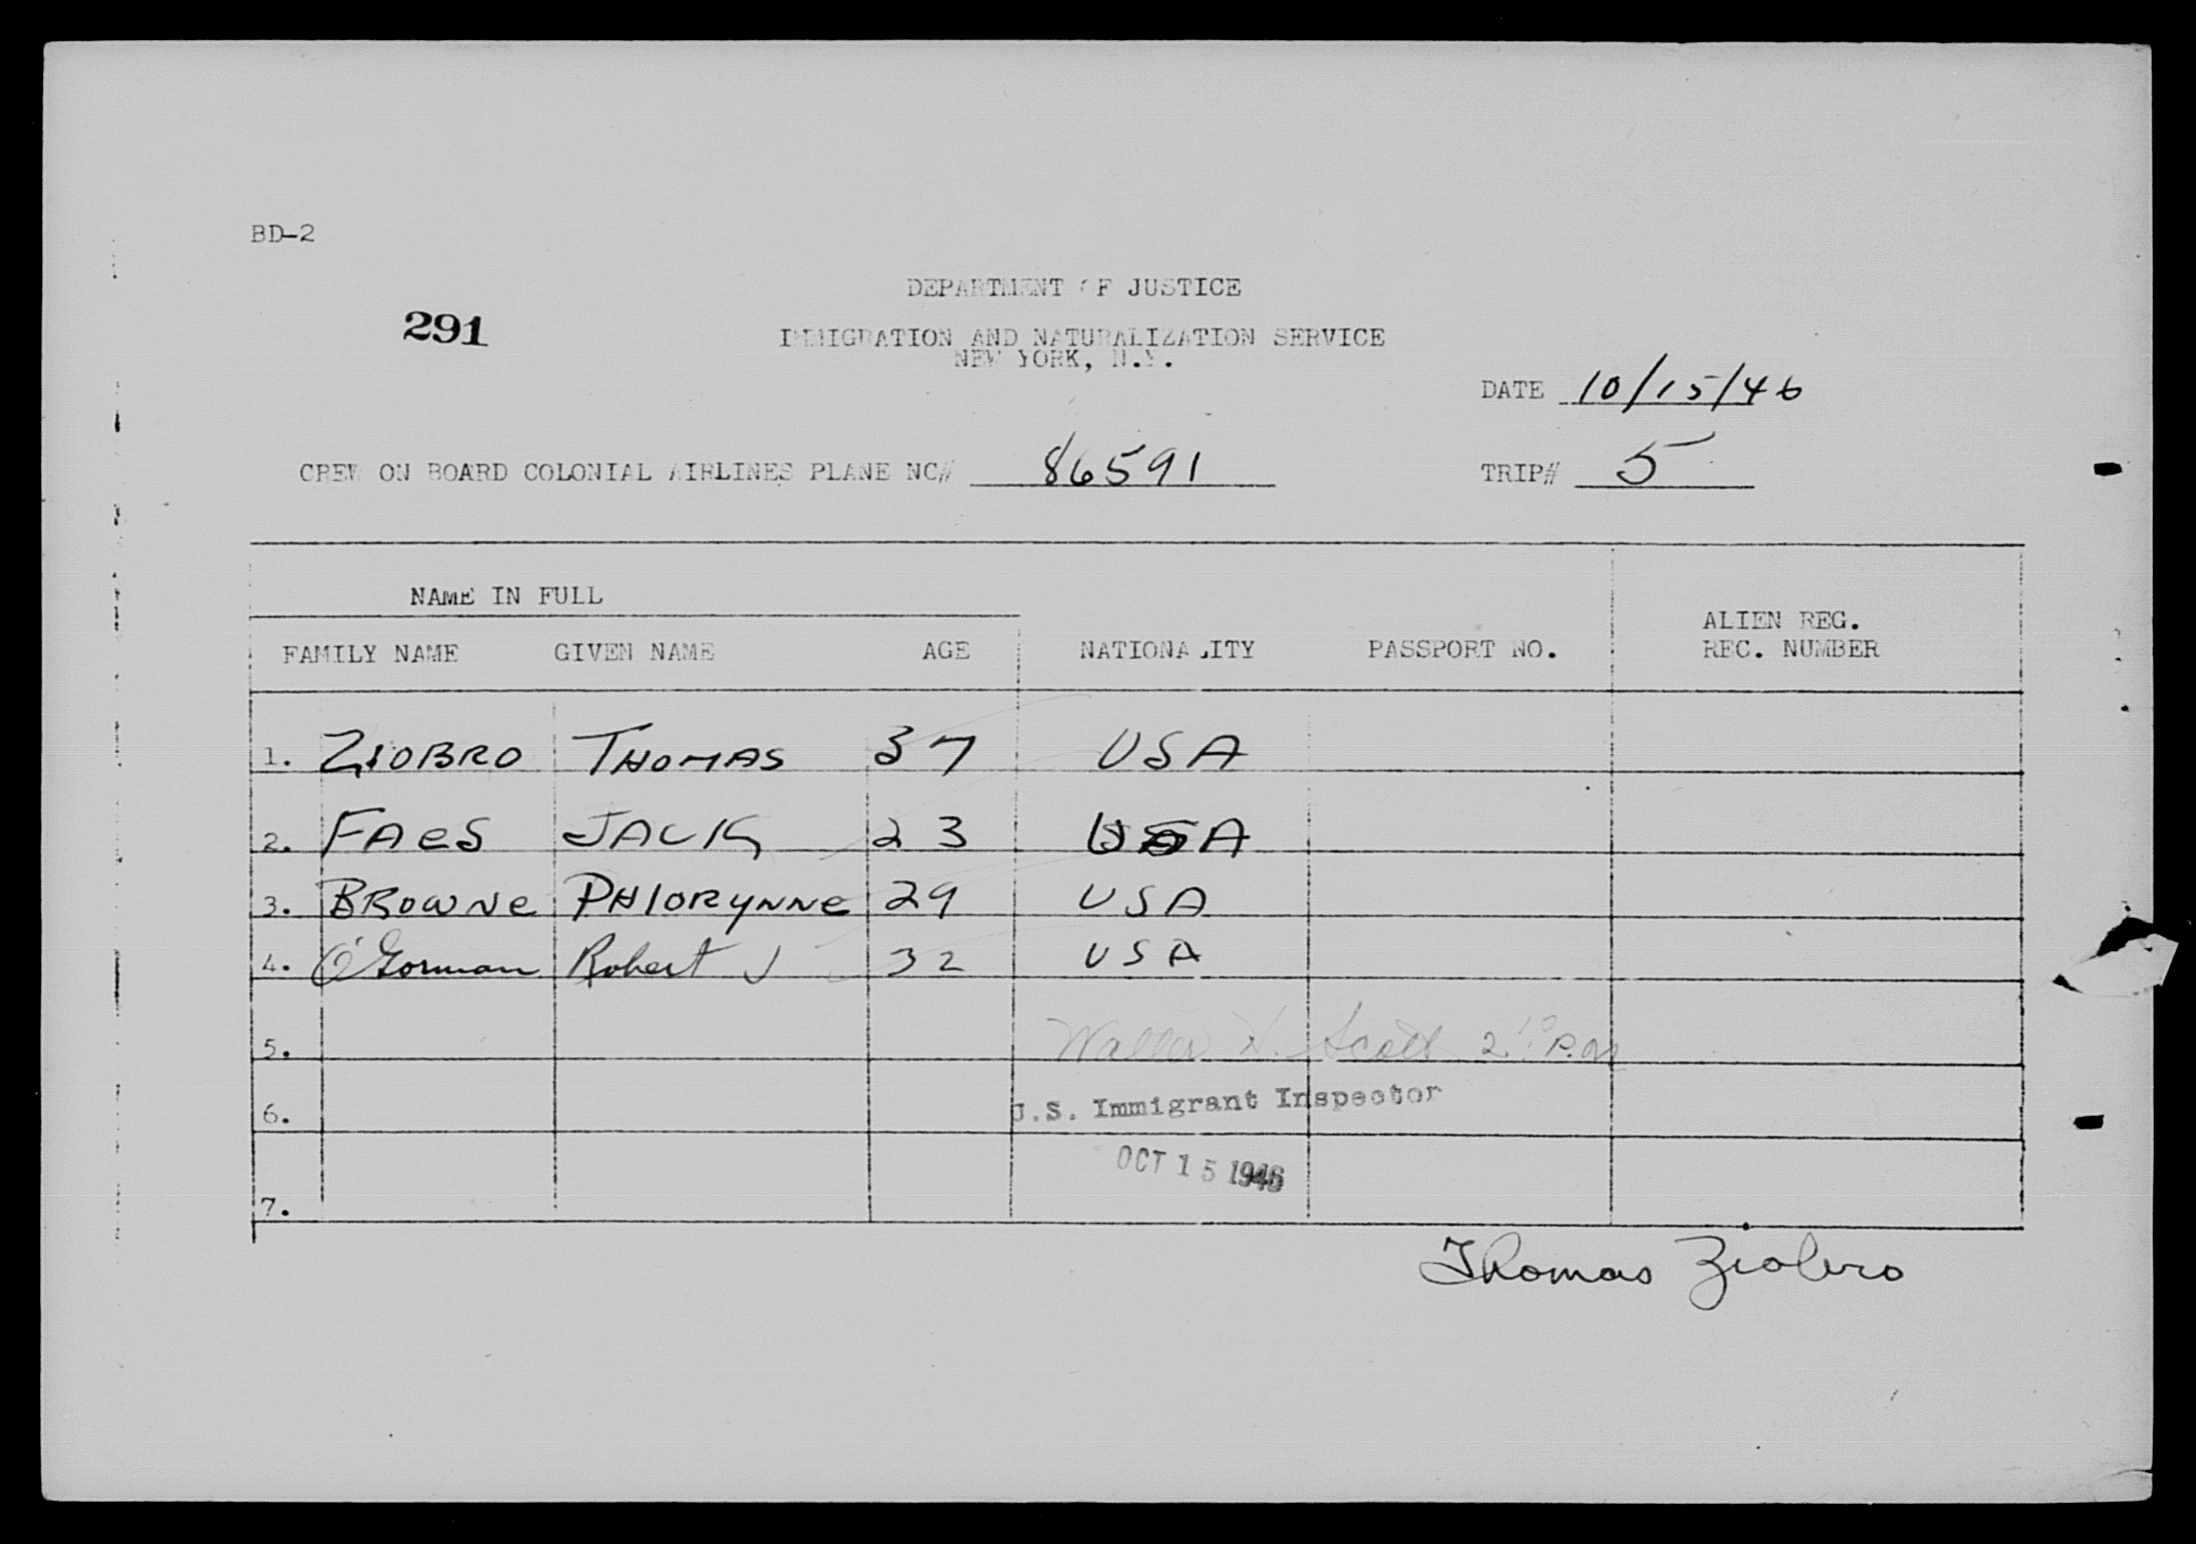 BD-2
DEPARTMENT OF JUSTICE
291
IMMIGRATION AND NATURALIZATION SERVICE
NEW YORK, N.Y.
DATE 10/15/46
CREW ON BOARD COLONIAL AIRLINES PLANE NC# 86591 TRIP# 5
NAME IN FULL
ALIEN REG.
FAMILY NAME GIVEN NAME AGE NATIONALITY PASSPORT NO. REC. NUMBER
1. ZIOBRO THOMAS 37 USA
2. FAeS JACK 23 USA
3. BROWNe PHIORYNNe 29 USA
4. O'Gorman Robert J 32 USA
5. Scott
6. U.S. Immigrant Inspector
OCT 15 1946
7.
Thomas Ziobro